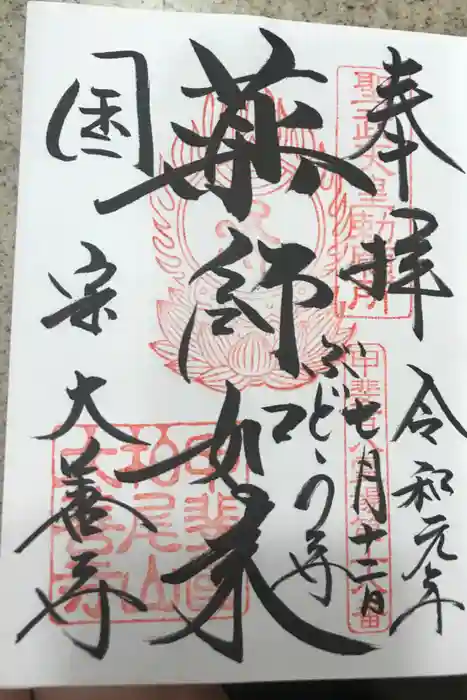 奉拝
令和元年
七月十二日
ぶどうの寺
薬師如来
国宗大善寺
聖武天皇勅願所
甲斐国
柏尾山
大善寺